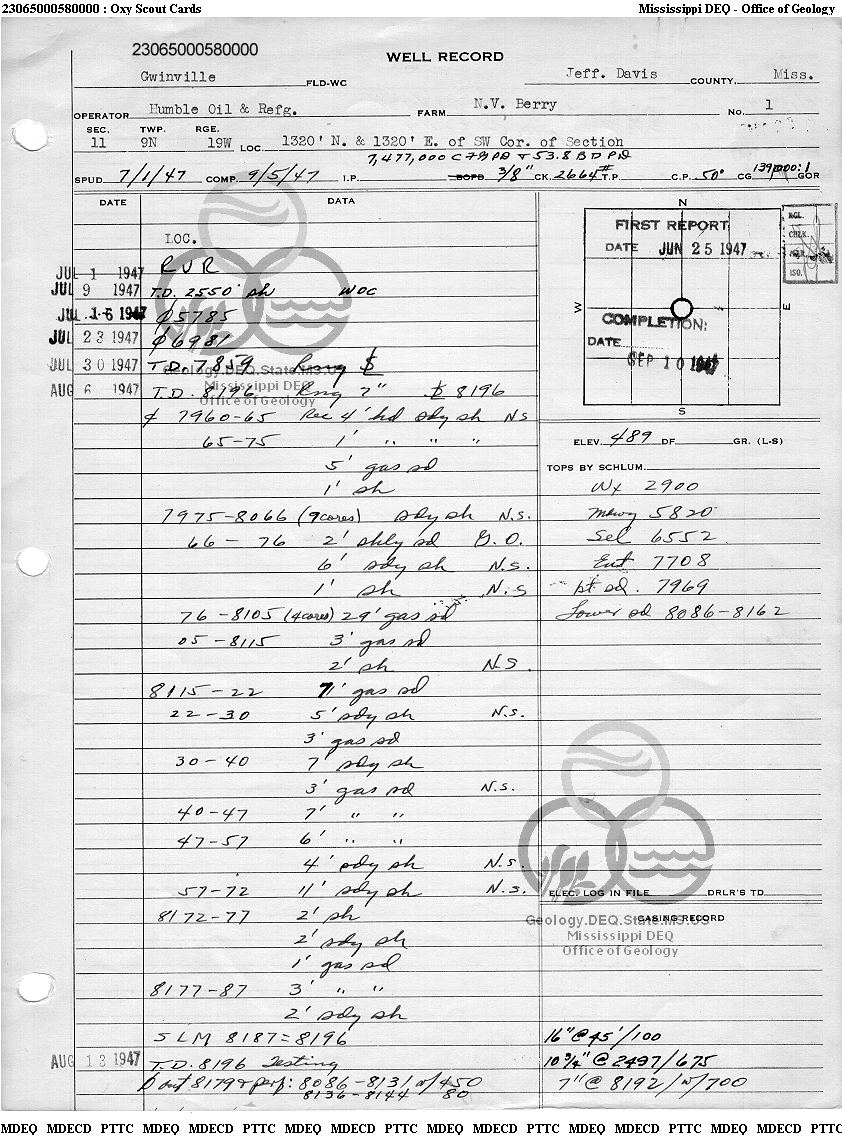 23065000580000 : Oxy Scout Cards Mississippi DEQ - Office of Geology
23065000580000
WELL RECORD
Gwinville FLD-WC Jeff. Davis COUNTY, Miss.
OPERATOR Humble Oil & Refg. FARM N.V. Berry No. 1
SEC. TWP. RGE.
11 9N 19W LOC. 1320' N. & 1320' E. of SW Cor. of Section
7,477,000 CFGPD + 53.8 BDPD
SPUD 7/1/47 COMP. 9/5/47 I.P. BOPD 3/8" CK. 2664# T.P. C.P. 50° CG 139,000:1 GOR
DATE DATA
N
W
E
S
FIRST REPORT
DATE JUN 25 1947
COMPLETION:
DATE
SEP 10 1947
LOC.
JUL 1 1947 RUR
JUL 9 1947 T.D. 2550' sh WOC
JUL 16 1947 5785
JUL 23 1947 6981
JUL 30 1947 T.D. 7859 Rnng
AUG 6 1947 T.D. 8196 Rnng 7" 8196
7960-65 Rec 4' hd sdy sh NS
65-75 1' " " "
5' gas sd
1' sh
7975-8066 (9cores) sdy sh N.S.
66-76 2' shly sd G.O.
6' sdy sh N.S.
1' sh N.S
76-8105 (4cores) 29' gas sd
05-8115 3' gas sd
2' sh N.S.
8115-22 7' gas sd
22-30 5' sdy sh N.S.
3' gas sd
30-40 7' sdy sh
3' gas sd N.S.
40-47 7' " "
47-57 6' " "
4' sdy sh N.S.
57-72 11' sdy sh N.S.
8172-77 2' sh
2' sdy sh
1' gas sd
8177-87 3' " "
2' sdy sh
SLM 8187=8196
AUG 13 1947 T.D. 8196 Testing
8179 & perf: 8086-8131 w/450
8136-8144 80
ELEV. 489 DF. GR. (L-S)
TOPS BY SCHLUM.
Wx 2900
5820
Sel 6552
Eut 7708
1st sd. 7969
Lower sd 8086-8162
ELEC. LOG IN FILE DRLR'S TD
CASING RECORD
16" @ 45'/100
10 3/4" @ 2497/675
7" @ 8192/w/700
Geology.DEQ.State.MS.US
Mississippi DEQ
Office of Geology
Geology.DEQ.State.MS.US
Mississippi DEQ
Office of Geology
MDEQ MDECD PTTC MDEQ MDECD PTTC MDEQ MDECD PTTC MDEQ MDECD PTTC MDEQ MDECD PTTC MDEQ MDECD PTTC